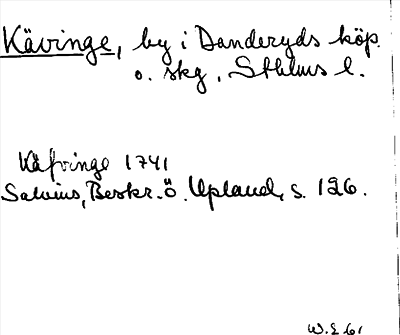 Kävinge, by i Danderyds köp.
o. skg, Sthlms l.
Käfvinge 1741
Salvius, Beskr. ö. Upland, s. 126.
W.E 61